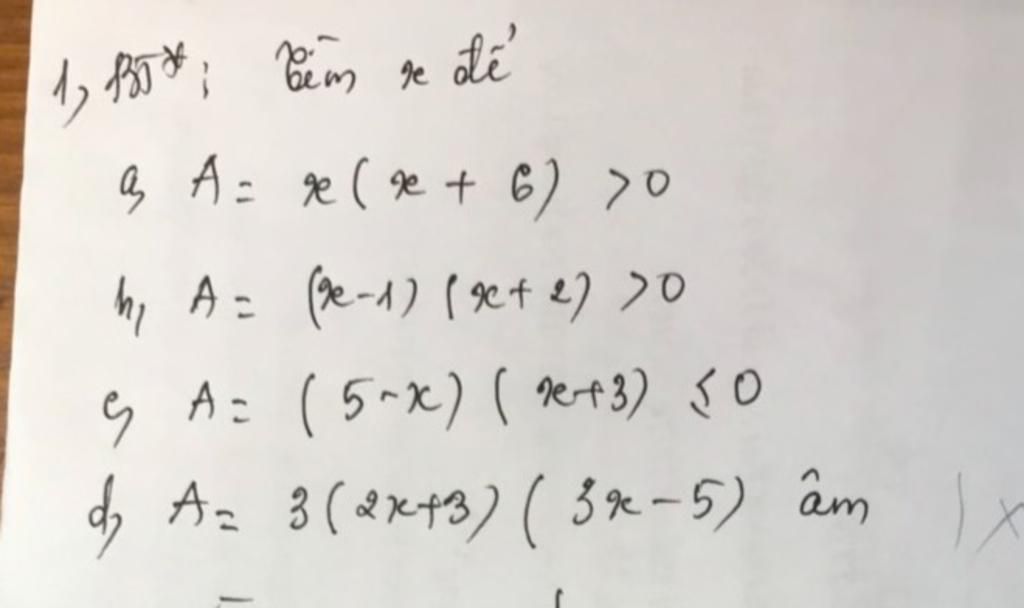 1, BT*: Tìm x để
a, A = x(x + 6) >0
b, A = (x-1)(x+2) >0
c, A = (5-x)(x+3) ≤ 0
d, A = 3(2x+3)(3x-5) âm